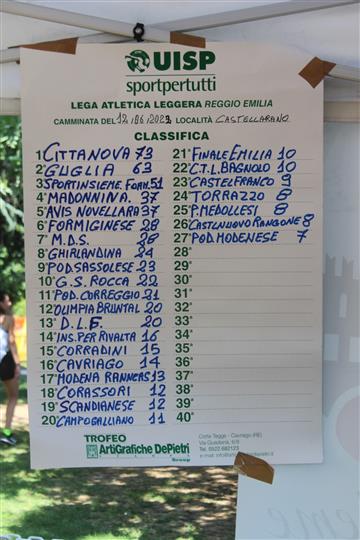 UISP
sportpertutti
LEGA ATLETICA LEGGERA REGGIO EMILIA
CAMMINATA DEL 12/06/2022 LOCALITÀ CASTELLARANO
CLASSIFICA
1° CITTANOVA 73
2° GUGLIA 63
3° SPORTINSIEME FORM. 51
4° MADONNINA 37
5° AVIS NOVELLARA 37
6° FORMIGINESE 28
7° M.D.S. 28
8° GHIRLANDINA 24
9° POD SASSOLESE 23
10° G.S. ROCCA 22
11° POD. CORREGGIO 21
12° OLIMPIA BRUNTAL 20
13° D.L.F. 20
14° INS. PER RIVALTA 16
15° CORRADINI 15
16° CAVRIAGO 14
17° MODENA RANNERS 13
18° CORASSORI 12
19° SCANDIANESE 12
20° CAMPOGALLIANO 11
21° FINALE EMILIA 10
22° C.T.L. BAGNOLO 10
23° CASTELFRANCO 9
24° TORRAZZO 8
25° P. MEDOLLESI 8
26° CASTELNUOVO RANGONE 8
27° POD MODENESE 7
28°
29°
30°
31°
32°
33°
34°
35°
36°
37°
38°
39°
40°
TROFEO
ArtiGrafiche DePietri
Group
Corte Tegge - Cavriago (RE)
Tel. 0522.682123